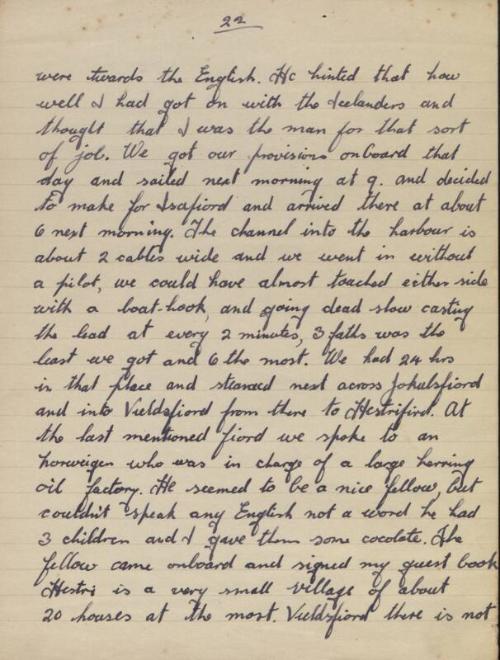 22
were towards the English. He hinted that how
well I had got on with the Icelanders and
thought that I was the man for that sort
of job. We got our provisions onboard that
day and sailed next morning at 9. and decided
to make for Isafiord and arrived there at about
6 next morning. The channel into the harbour is
about 2 cables wide and we went in without
a pilot, we could have almost touched either side
with a boat-hook, and going dead slow casting
the lead at every 2 minutes, 3 faths was the
least we got and 6 the most. We had 24 hrs
in that place and steamed next across Jokulsfiord
and into Vieldsfiord from there to Hestrifird. At
the last mentioned fiord we spoke to an
norweigen who was in charge of a large herring
oil factory. He seemed to be a nice fellow, but
couldn't speak any English not a word he had
3 children and I gave them some cocolate. The
fellow came onboard and signed my guest book
Hestri is a very small village of about
20 houses at the most. Vieldsfiord there is not